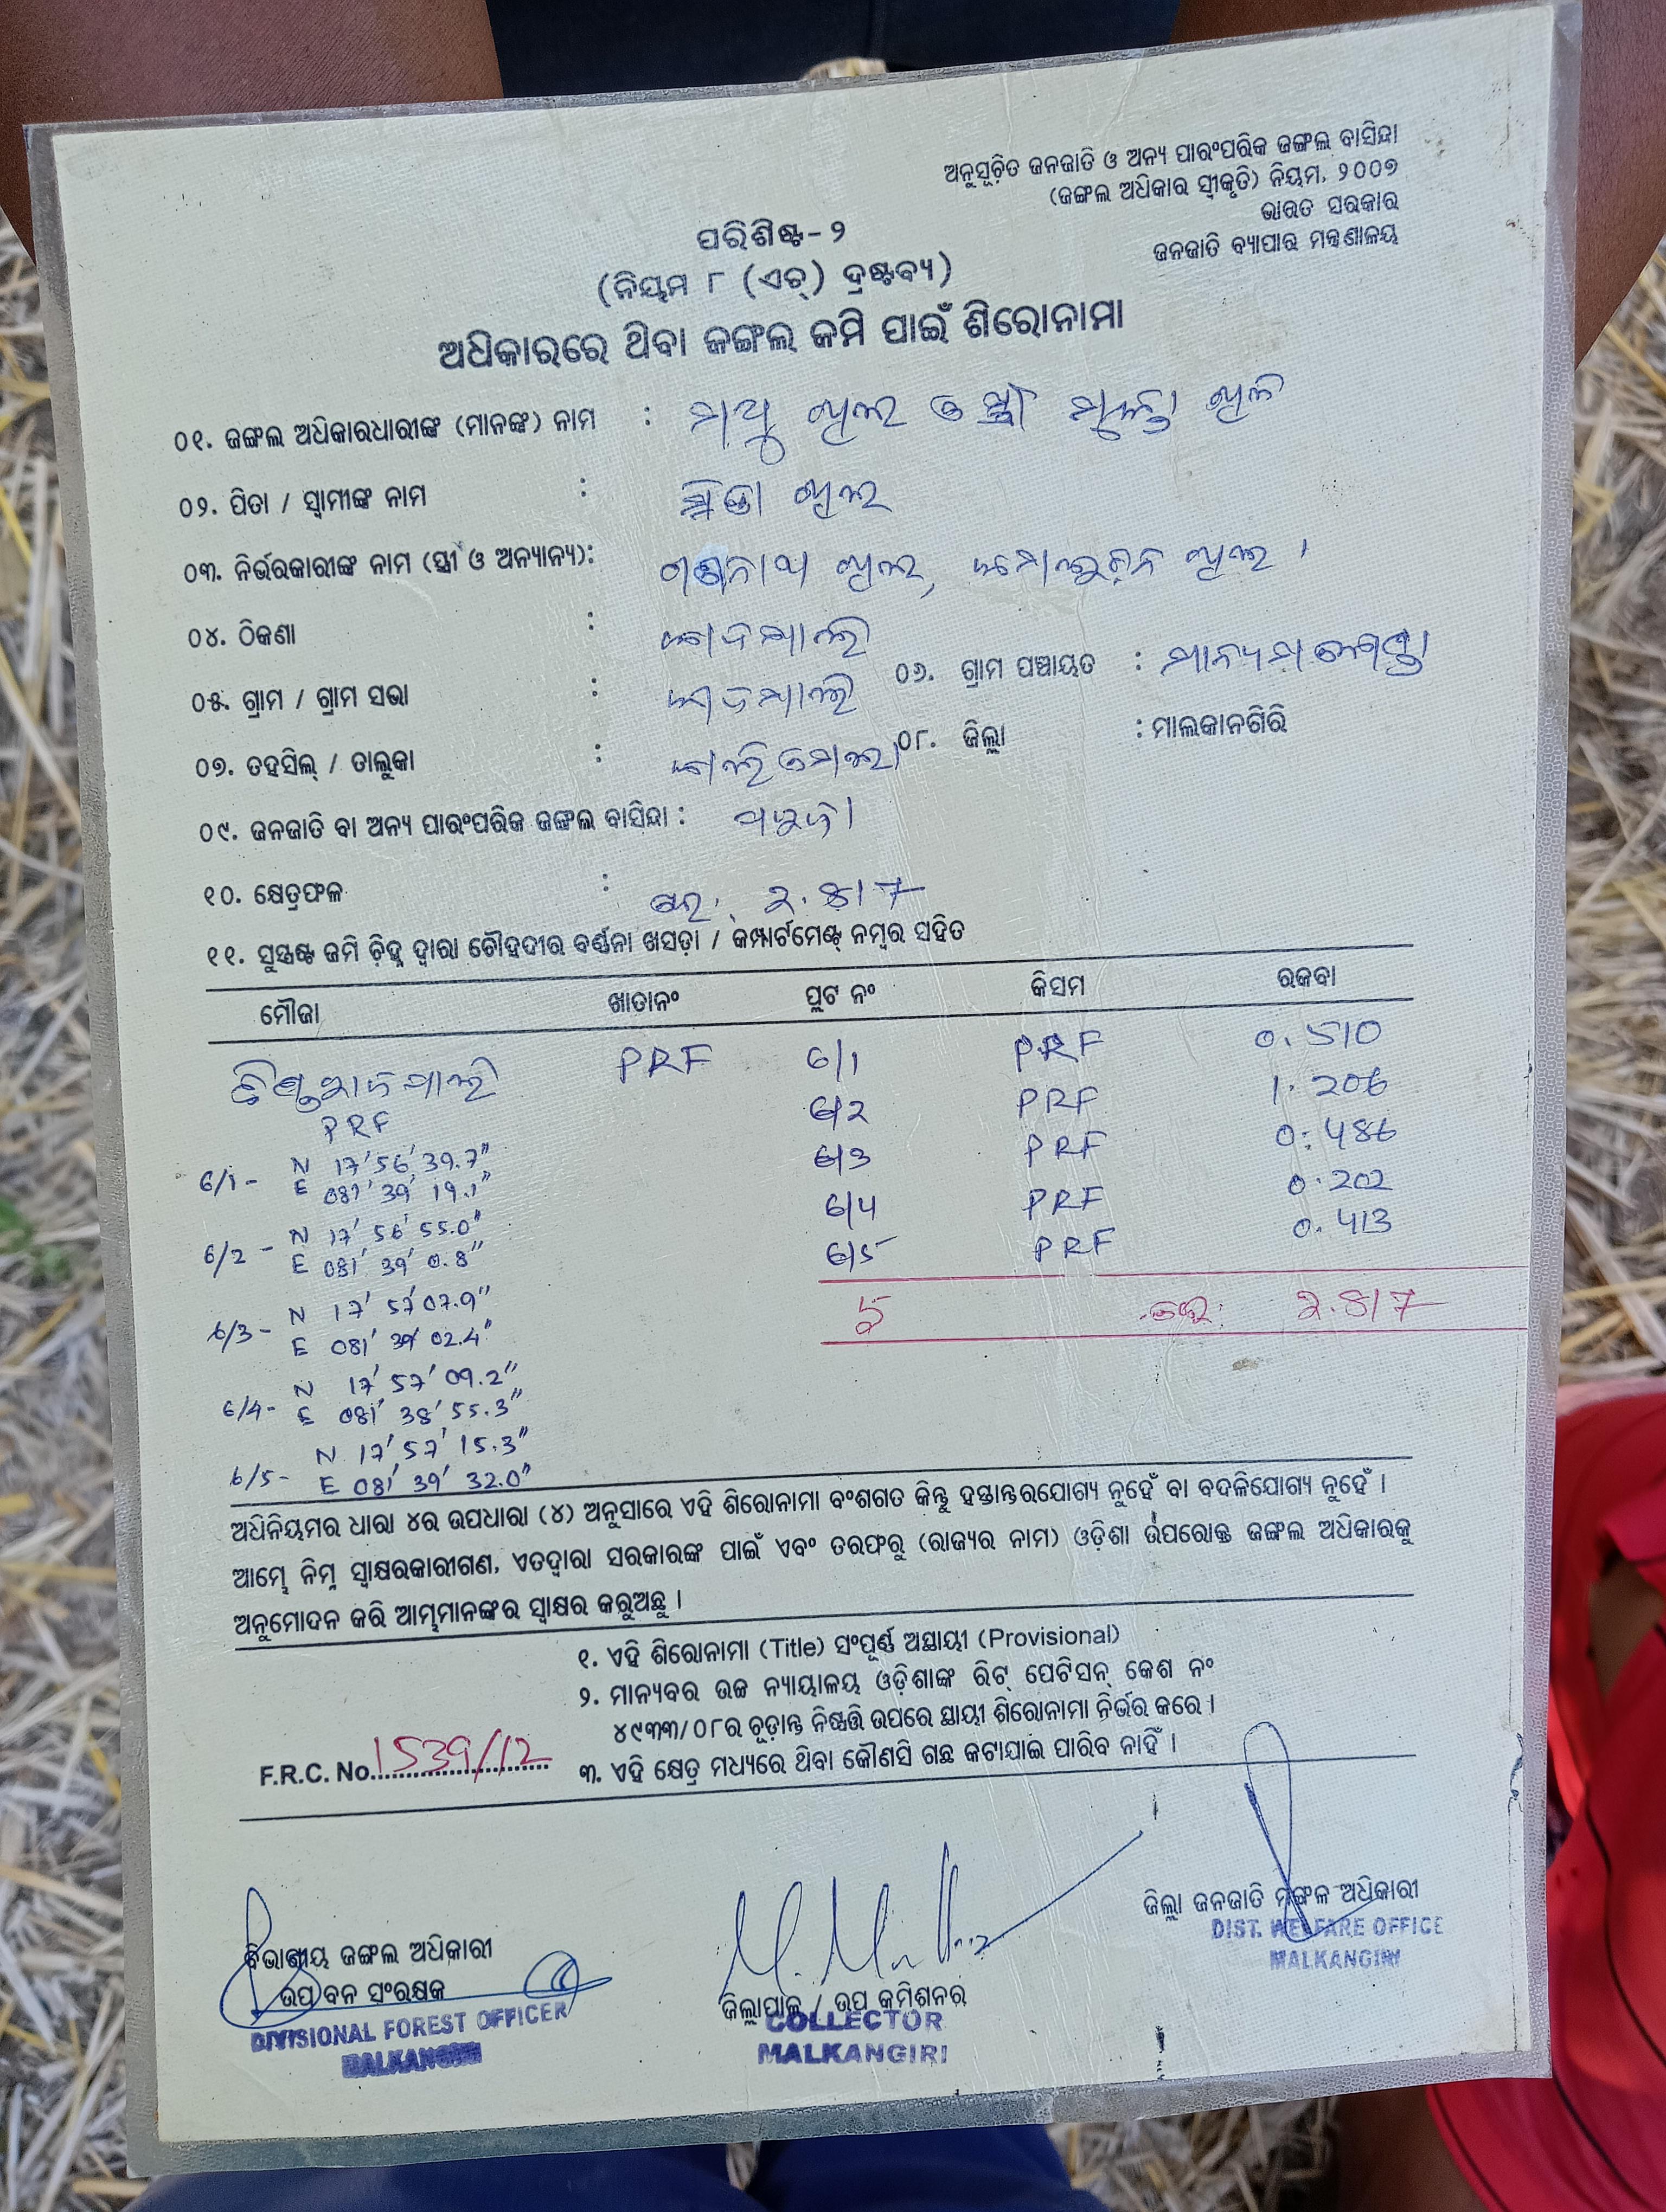 ଅନୁସୂଚିତ ଜନଜାତି ଓ ଅନ୍ୟ ପାରଂପରିକ ଜଙ୍ଗଲ ବାସିନ୍ଦା
(ଜଙ୍ଗଲ ଅଧିକାର ସ୍ୱୀକୃତି) ନିୟମ, ୨୦୦୭
ଭାରତ ସରକାର
ଜନଜାତି ବ୍ୟାପାର ମନ୍ତ୍ରଣାଳୟ
ପରିଶିଷ୍ଟ-୨
(ନିୟମ ୮ (ଏଚ୍) ଦ୍ରଷ୍ଟବ୍ୟ)
ଅଧିକାରରେ ଥିବା ଜଙ୍ଗଲ ଜମି ପାଇଁ ଶିରୋନାମା
୦୧. ଜଙ୍ଗଲ ଅଧିକାରଧାରୀଙ୍କ (ମାନଙ୍କ) ନାମ :
୦୨. ପିତା / ସ୍ୱାମୀଙ୍କ ନାମ :
୦୩. ନିର୍ଭରକାରୀଙ୍କ ନାମ (ସ୍ତ୍ରୀ ଓ ଅନ୍ୟାନ୍ୟ):
୦୪. ଠିକଣା :
୦୫. ଗ୍ରାମ / ଗ୍ରାମ ସଭା : ୦୬. ଗ୍ରାମ ପଞ୍ଚାୟତ :
୦୭. ତହସିଲ୍ / ତାଲୁକା : ୦୮. ଜିଲ୍ଲା : ମାଲକାନଗିରି
୦୯. ଜନଜାତି ବା ଅନ୍ୟ ପାରଂପରିକ ଜଙ୍ଗଲ ବାସିନ୍ଦା :
୧୦. କ୍ଷେତ୍ରଫଳ : ହେ: 2.817
୧୧. ସୁସ୍ପଷ୍ଟ ଜମି ଚିହ୍ନ ଦ୍ୱାରା ଚୌହଦୀର ବର୍ଣ୍ଣନା ଖସଡ଼ା / କମ୍ପାର୍ଟମେଣ୍ଟ୍ ନମ୍ବର ସହିତ
ମୌଜା ଖାତାନଂ ପ୍ଲଟ ନଂ କିସମ ରକବା
PRF 6/1 PRF 0.510
6/2 PRF 1.206
6/3 PRF 0.486
6/4 PRF 0.202
6/5 PRF 0.413
5 ହେ: 2.817
PRF
6/1- N 17' 56' 39.7"
E 081' 39' 19.1"
6/2 - N 17' 56' 55.0"
E 081' 39' 0.8"
6/3 - N 17' 57' 07.9"
E 081' 39' 02.4"
6/4- N 17' 57' 09.2"
E 081' 38' 55.3"
6/5- N 17' 57' 15.3"
E 081' 39' 32.0"
ଅଧିନିୟମର ଧାରା ୪ର ଉପଧାରା (୪) ଅନୁସାରେ ଏହି ଶିରୋନାମା ବଂଶଗତ କିନ୍ତୁ ହସ୍ତାନ୍ତରଯୋଗ୍ୟ ନୁହେଁ ବା ବଦଳିଯୋଗ୍ୟ ନୁହେଁ ।
ଆମ୍ଭେ ନିମ୍ନ ସ୍ୱାକ୍ଷରକାରୀଗଣ, ଏତଦ୍ୱାରା ସରକାରଙ୍କ ପାଇଁ ଏବଂ ତରଫରୁ (ରାଜ୍ୟର ନାମ) ଓଡ଼ିଶା ଉପରୋକ୍ତ ଜଙ୍ଗଲ ଅଧିକାରକୁ
ଅନୁମୋଦନ କରି ଆମ୍ଭମାନଙ୍କର ସ୍ୱାକ୍ଷର କରୁଅଛୁ ।
୧. ଏହି ଶିରୋନାମା (Title) ସଂପୂର୍ଣ୍ଣ ଅସ୍ଥାୟୀ (Provisional)
୨. ମାନ୍ୟବର ଉଚ୍ଚ ନ୍ୟାୟାଳୟ ଓଡ଼ିଶାଙ୍କ ରିଟ୍ ପେଟିସନ୍ କେଶ ନଂ
୪୯୩୩/୦୮ର ଚୂଡ଼ାନ୍ତ ନିଷ୍ପତ୍ତି ଉପରେ ସ୍ଥାୟୀ ଶିରୋନାମା ନିର୍ଭର କରେ ।
୩. ଏହି କ୍ଷେତ୍ର ମଧ୍ୟରେ ଥିବା କୌଣସି ଗଛ କଟାଯାଇ ପାରିବ ନାହିଁ ।
F.R.C. No. 1539/12
ବିଭାଗୀୟ ଜଙ୍ଗଲ ଅଧିକାରୀ
ଉପ ବନ ସଂରକ୍ଷକ
DIVISIONAL FOREST OFFICER
MALKANGIRI
ଜିଲ୍ଲାପାଳ / ଉପ କମିଶନର
COLLECTOR
MALKANGIRI
ଜିଲ୍ଲା ଜନଜାତି ମଙ୍ଗଳ ଅଧିକାରୀ
DIST. WELFARE OFFICE
MALKANGIRI